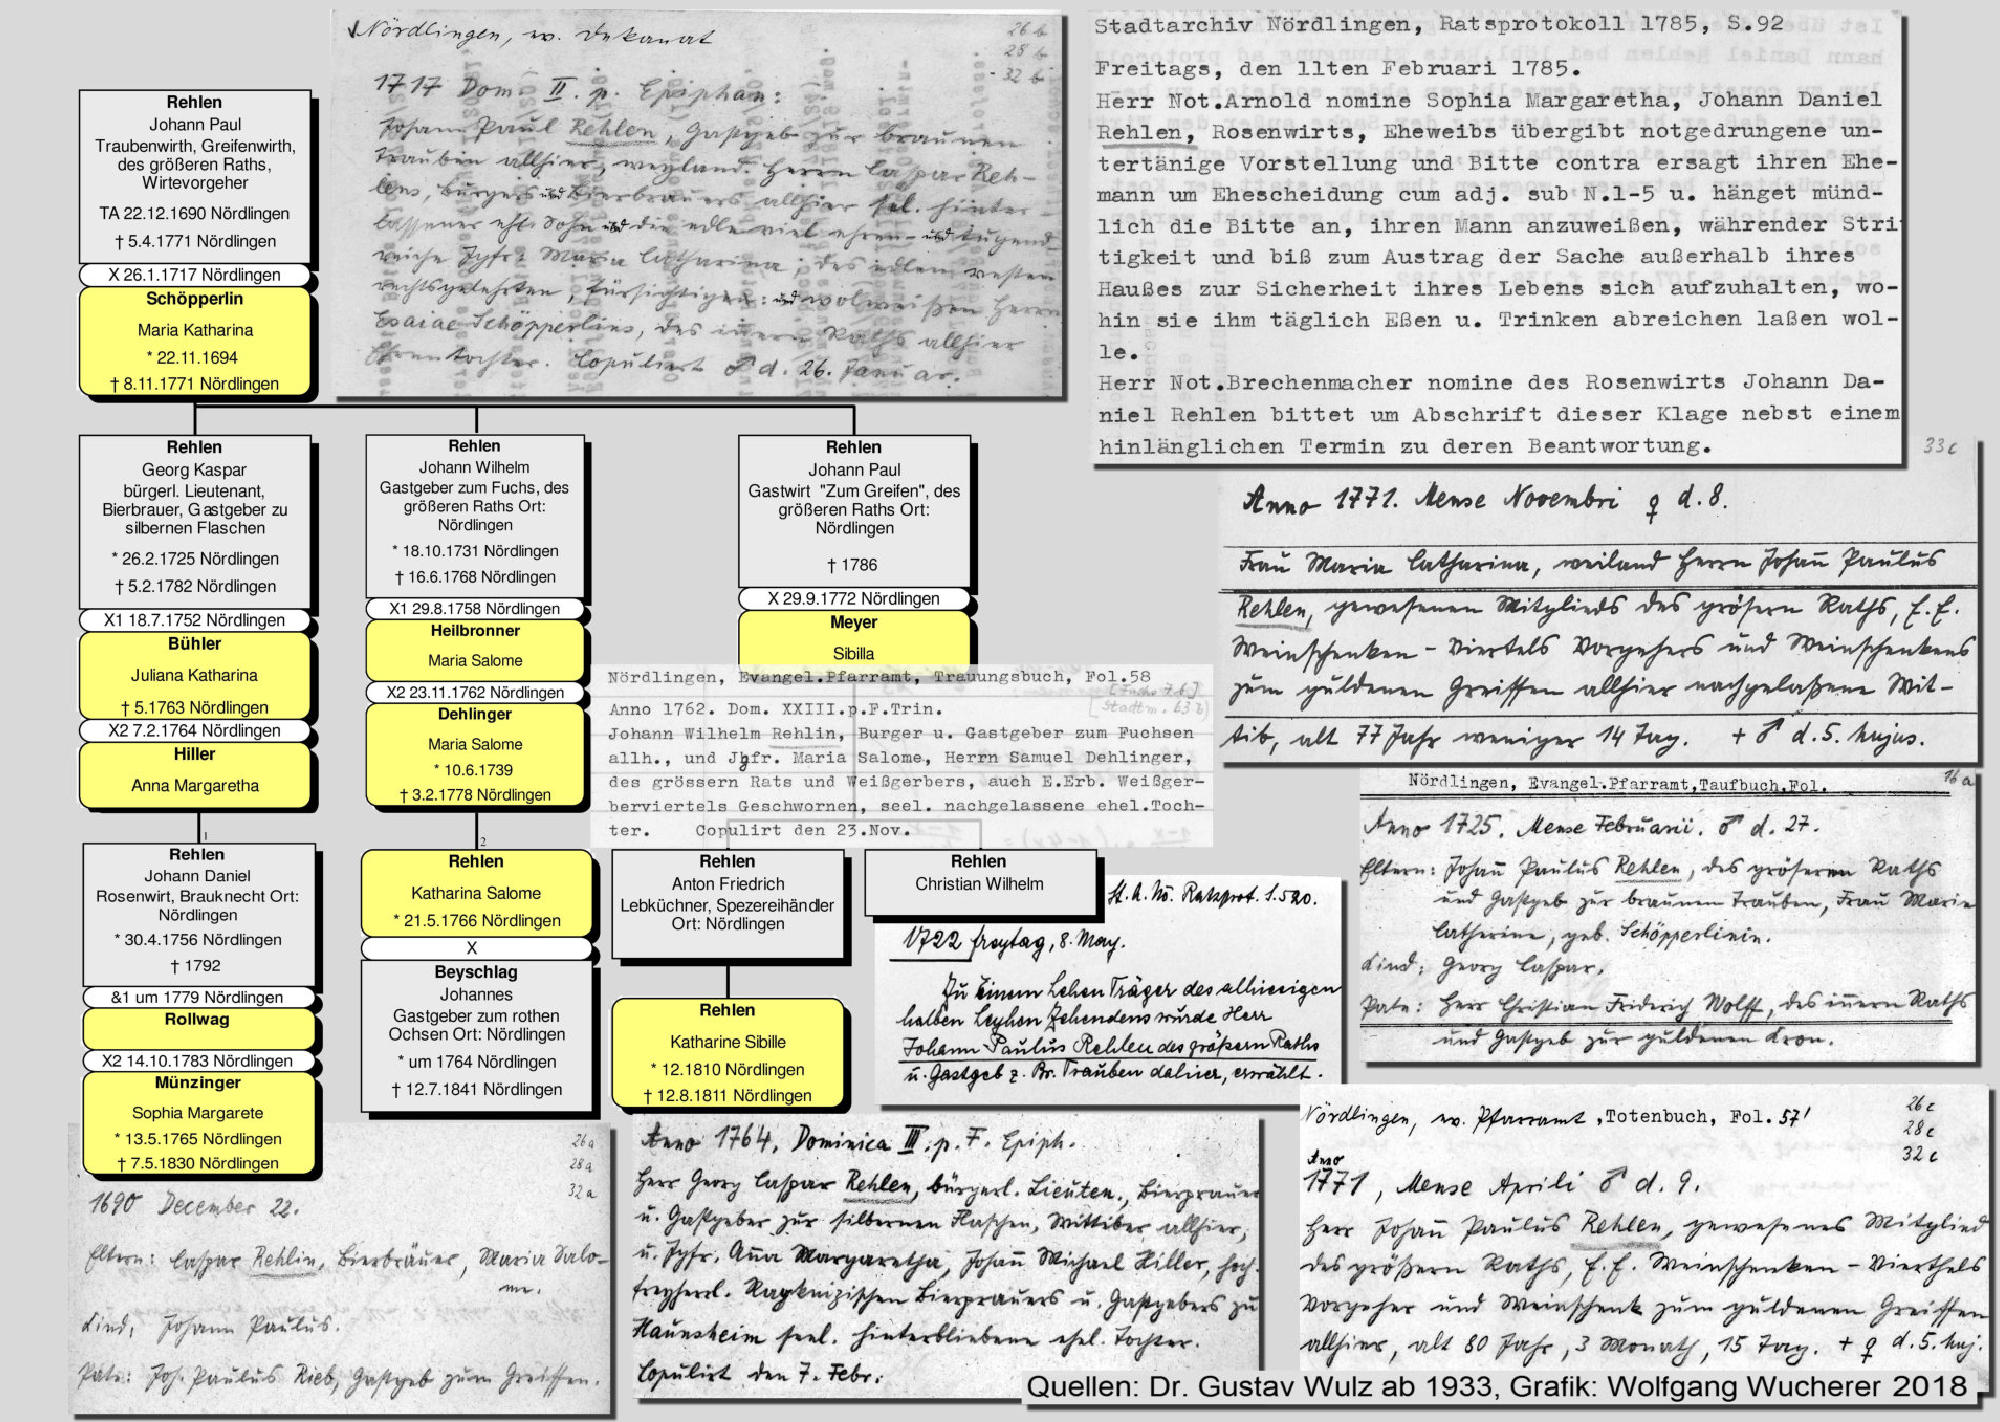 Rehlen
Johann Paul
Traubenwirth, Greifenwirth,
des größeren Raths,
Wirtevorgeher
TA 22.12.1690 Nördlingen
† 5.4.1771 Nördlingen
X 26.1.1717 Nördlingen
Schöpperlin
Maria Katharina
* 22.11.1694
† 8.11.1771 Nördlingen
Nördlingen, ev. Dekanat
26 b
28 b
32 b
1717 Dom. II. p. Epiphan:
Johann Paul Rehlen, Gastgeb zur braunen
Trauben allhier, weyland Herrn Caspar Reh-
lens, Burgers und Bierbrauers allhier sel. hinter-
lassener ehl. Sohn und die edle viel ehren- und tugend
reiche Jgfr: Maria Catharina, des edlen vesten
rechtsgelehrten, fürsichtigen: und wolweißen Herrn
Esaiae Schöpperlins, des innern Raths allhier
Ehrentochter. Copuliert ♂ d. 26. Januar.
Stadtarchiv Nördlingen, Ratsprotokoll 1785, S.92
Freitags, den 11ten Februari 1785.
Herr Not.Arnold nomine Sophia Margaretha, Johann Daniel
Rehlen, Rosenwirts, Eheweibs übergibt notgedrungene un-
tertänige Vorstellung und Bitte contra ersagt ihren Ehe-
mann um Ehescheidung cum adj. sub N.1-5 u. hänget münd-
lich die Bitte an, ihren Mann anzuweißen, währender Stri
tigkeit und biß zum Austrag der Sache außerhalb ihres
Haußes zur Sicherheit ihres Lebens sich aufzuhalten, wo-
hin sie ihm täglich Eßen u. Trinken abreichen laßen wol-
le.
Herr Not.Brechenmacher nomine des Rosenwirts Johann Da-
niel Rehlen bittet um Abschrift dieser Klage nebst einem
hinlänglichen Termin zu deren Beantwortung.
Rehlen
Georg Kaspar
bürgerl. Lieutenant,
Bierbrauer, Gastgeber zu
silbernen Flaschen
* 26.2.1725 Nördlingen
† 5.2.1782 Nördlingen
X1 18.7.1752 Nördlingen
Bühler
Juliana Katharina
† 5.1763 Nördlingen
X2 7.2.1764 Nördlingen
Hiller
Anna Margaretha
Rehlen
Johann Wilhelm
Gastgeber zum Fuchs, des
größeren Raths Ort:
Nördlingen
* 18.10.1731 Nördlingen
† 16.6.1768 Nördlingen
X1 29.8.1758 Nördlingen
Heilbronner
Maria Salome
X2 23.11.1762 Nördlingen
Dehlinger
Maria Salome
* 10.6.1739
† 3.2.1778 Nördlingen
Rehlen
Johann Paul
Gastwirt "Zum Greifen", des
größeren Raths Ort:
Nördlingen
† 1786
X 29.9.1772 Nördlingen
Meyer
Sibilla
33 c
Anno 1771. Mense Novembri ♀ d. 8.
Frau Maria Catharina, weiland Herrn Johan Paulus
Rehlen, gewesenen Mitglieds des grösern Raths, E. E.
Weinschenken-Viertels Vorgehers und Weinschenkens
zum güldenen Greiffen allhier nachgelaßene Wit-
tib, alt 77 Jahr weniger 14 Tag. + ♂ d. 5. hujus.
Nördlingen, Evangel.Pfarramt, Trauungsbuch, Fol.58
[Fuchs 7 b]
[Stadtm. 63 b]
Anno 1762. Dom. XXIII.p.F.Trin.
Johann Wilhelm Rehlin, Burger u. Gastgeber zum Fuchsen
allh., und Jgfr. Maria Salome, Herrn Samuel Dehlinger,
des grössern Rats und Weißgerbers, auch E.Erb. Weißger-
berviertels Geschwornen, seel. nachgelassene ehel.Toch-
ter. Copulirt den 23.Nov.
Nördlingen, Evangel.Pfarramt,Taufbuch,Fol.
16 a
Anno 1725. Mense Februarii. ♂ d. 27.
Eltern: Johan Paulus Rehlen, des gröseren Raths
und Gastgeb zur braunen Trauben, Frau Maria
Catherina, geb. Schöpperlinin.
Kind: Georg Caspar.
Pate: Herr Christian Friderich Wolff, des innern Raths
und Gastgeb zur güldenen Kron.
1
Rehlen
Johann Daniel
Rosenwirt, Brauknecht Ort:
Nördlingen
* 30.4.1756 Nördlingen
† 1792
&1 um 1779 Nördlingen
Rollwag
X2 14.10.1783 Nördlingen
Münzinger
Sophia Margarete
* 13.5.1765 Nördlingen
† 7.5.1830 Nördlingen
2
Rehlen
Katharina Salome
* 21.5.1766 Nördlingen
X
Beyschlag
Johannes
Gastgeber zum rothen
Ochsen Ort: Nördlingen
* um 1764 Nördlingen
† 12.7.1841 Nördlingen
Rehlen
Anton Friedrich
Lebküchner, Spezereihändler
Ort: Nördlingen
Rehlen
Katharine Sibille
* 12.1810 Nördlingen
† 12.8.1811 Nördlingen
Rehlen
Christian Wilhelm
St. A. Nö. Ratsprot. S. 520.
1722 freytag, 8. May.
Zu Einem Lehen Träger des alhiesigen
halben Leyhen Zehendens wurde Herr
Johann Paulus Rehlen des größern Raths
u. Gastgeb z. Br. Trauben dahier, erwählt.
26 a
28 a
32 a
1690 December 22.
Eltern: Caspar Rehlin, Bierbräuer, Maria Salo-
me.
Kind, Johann Paulus.
Pate: Joh. Paulus Rieb, Gastgeb zum Greiffen.
Anno 1764, Dominica III. p. F. Epiph.
Herr Georg Caspar Rehlen, bürgerl. Lieuten., Bierprauer
u. Gastgeber zur silbernen Flaschen, Wittiber allhier,
u. Jgfr. Anna Margaretha, Johan Michael Hiller, hoch-
freyherrl. Bierprauers u. Gastgebers zu
Haunsheim seel. hinterbliebene ehel. Tochter.
Copulirt den 7. Febr.
Nördlingen, ev. Pfarramt, Totenbuch, Fol. 57'
26 c
28 c
32 c
Anno
1771, Mense Aprili ♂ d. 9.
Herr Johan Paulus Rehlen, gewesenes Mitglied
des größern Raths, E. E. Weinschenken-Vierthels
Vorgeher und Weinschenk zum guldenen Greiffen
allhier, alt 80 Jahr, 3 Monath, 15 Tag. + ♀ d. 5. huj.
Quellen: Dr. Gustav Wulz ab 1933, Grafik: Wolfgang Wucherer 2018